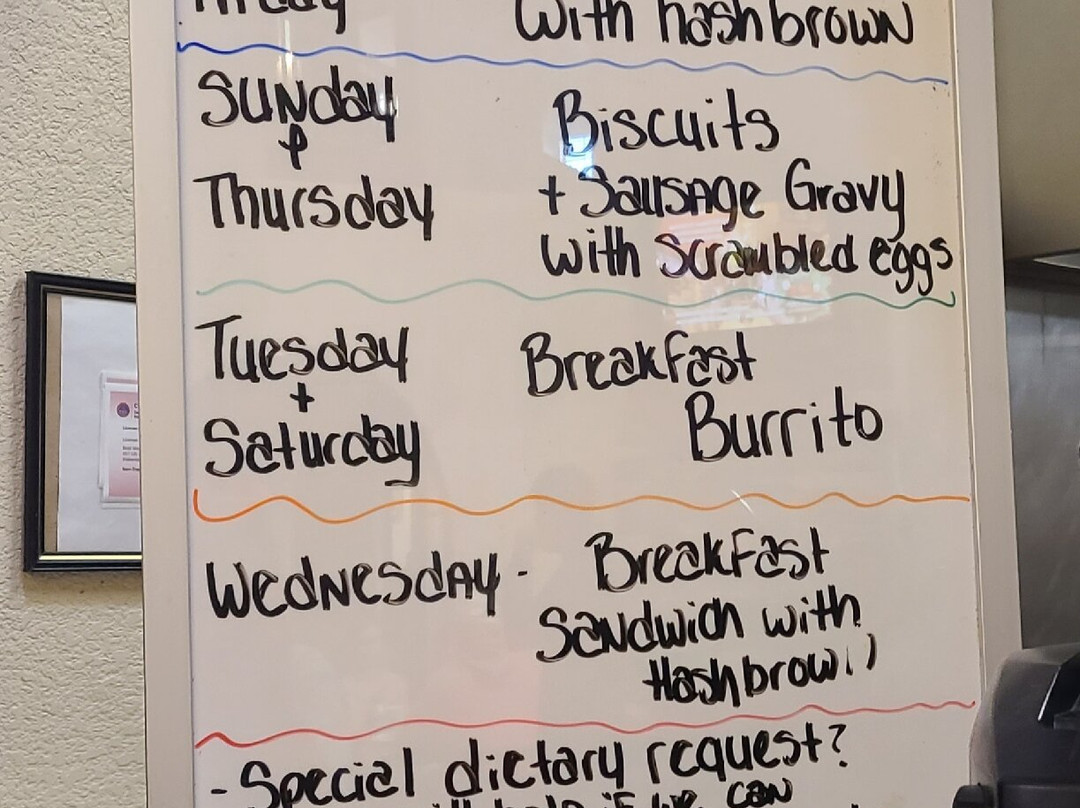 with hashbrown
Sunday
&
Thursday
Biscuits
+ Sausage Gravy
with scrambled eggs
Tuesday
+
Saturday
Breakfast
Burrito
Wednesday -
Breakfast
Sandwich with
Hashbrown
- Special dietary request?
if we can